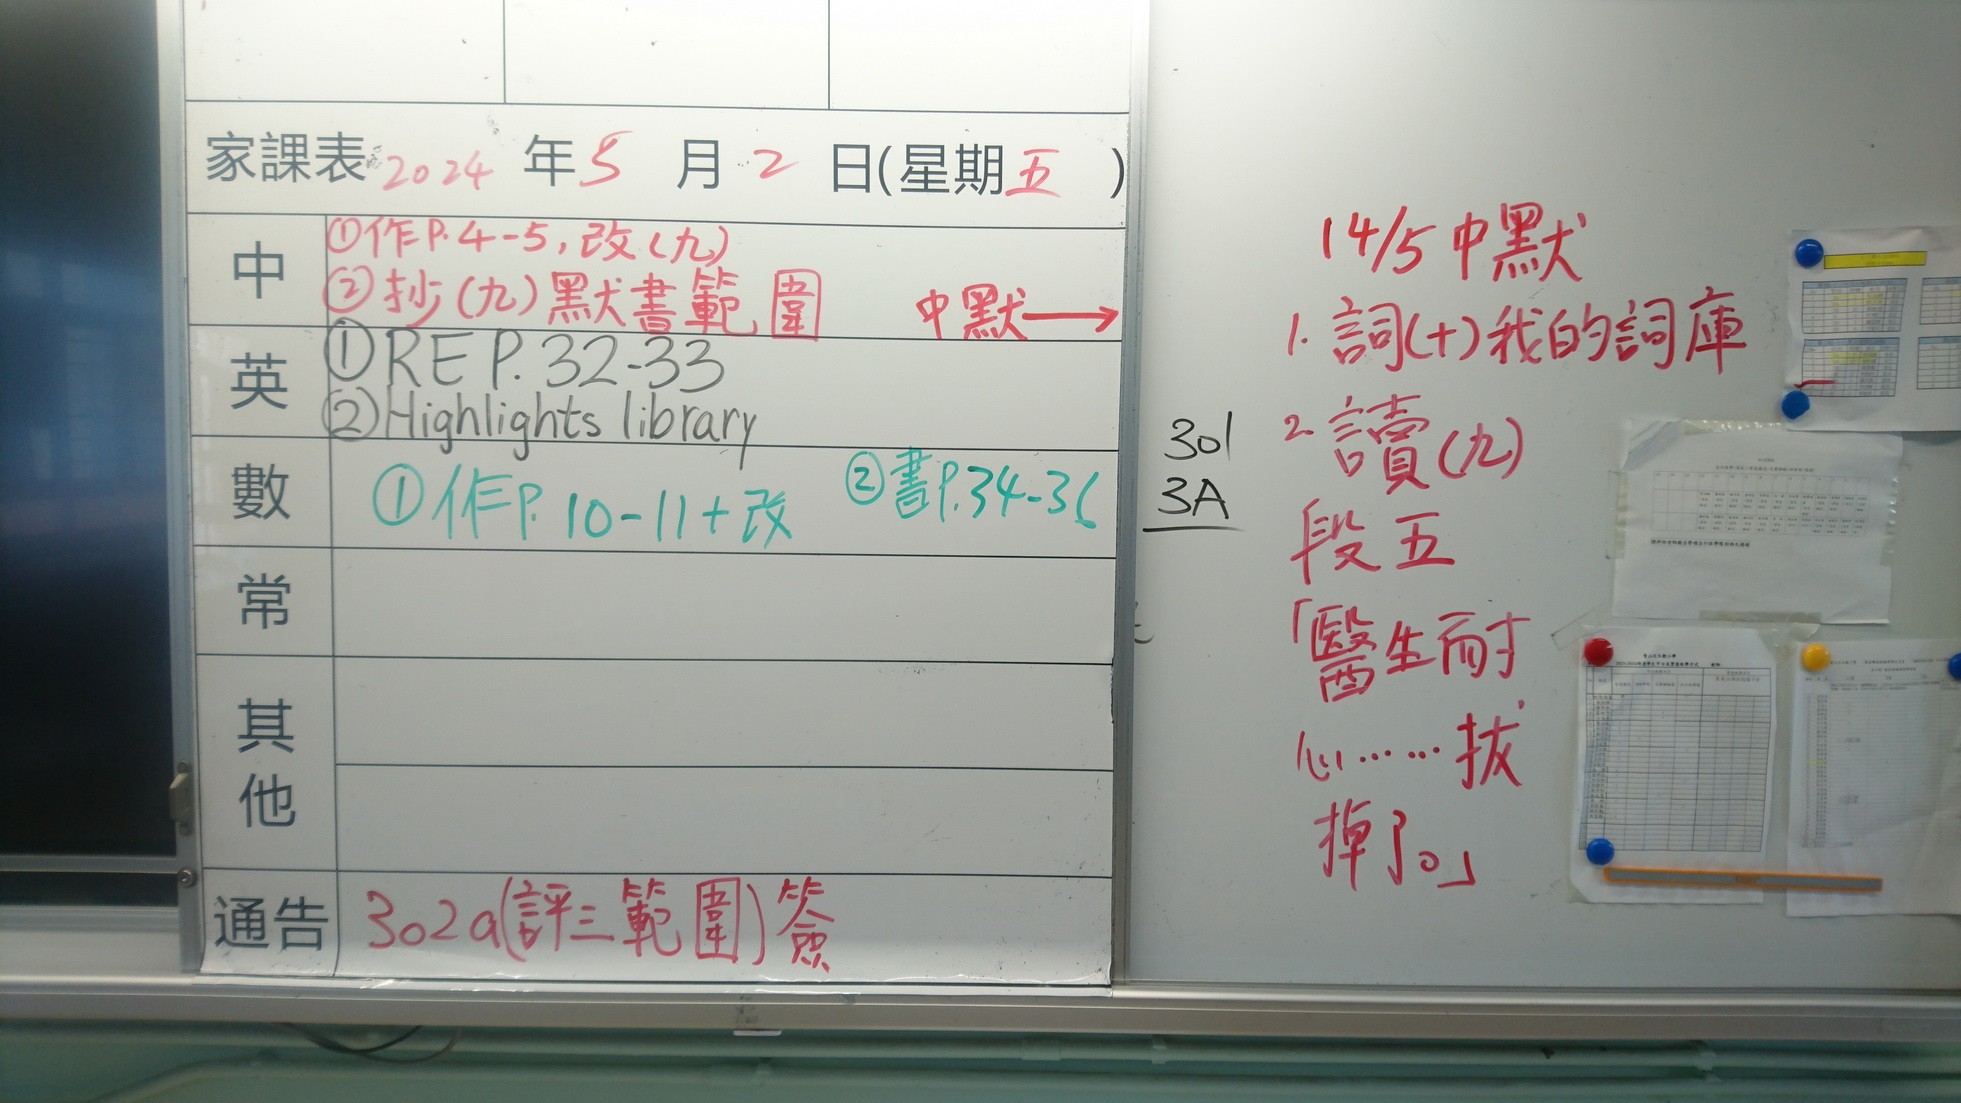 家課表 2024 年 5 月 2 日(星期五)
中
①作P.4-5,改(九)
②抄(九)默書範圍 中默→
英
①RE P.32-33
②Highlights library
數
①作P.10-11+改 ②書P.34-36
常
其他
通告 302a(評三範圍)簽
301
3A
14/5中默
1.詞(十)我的詞庫
2.讀(九)
段五
「醫生耐
心……拔
掉了。」